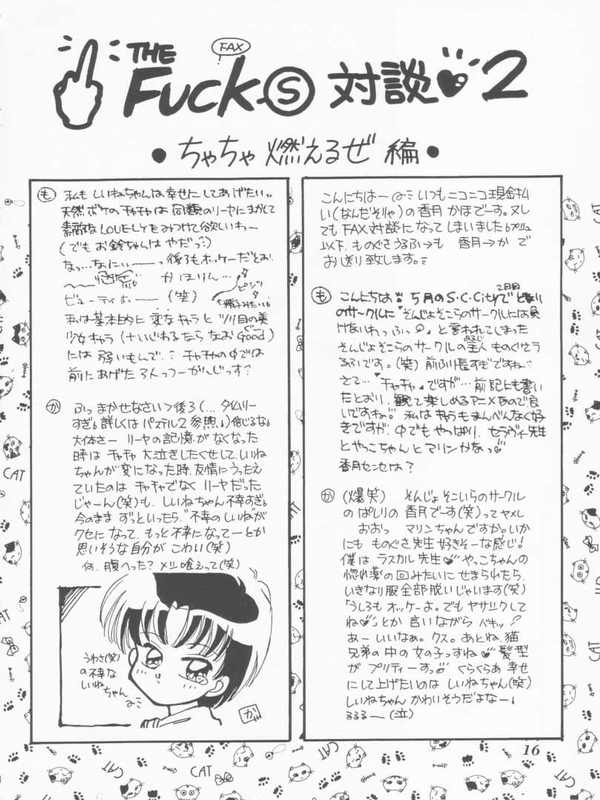 FAX
THE
FuckⓈ 対談 2
• ちゃちゃ 燃えるぜ 編 •
こんにちは〜
いつもニコニコ現金払
い(なんだそりゃ)の香月 かほでーす。又し
てもFAX対談になってしまいました
以下、ものぐさうるふ→も 香月→か で
お送り致します。
も こんにちは 5月のS.C.Cityで となり
2日目
のサークルに"そんじょそこらのサークルには負
と言われてしまった
そんじょそこらのサークルの主人 ものぐさう
るふです。(笑) 前ふり長すぎですね
さて…"チャチャ"ですが… 前記にも書い
たとおり、観て楽しめるアニメなので良
いですね 私は キャラもまんべんなく好
きですが、中でもやっぱり、セラヴィー先生
とやっこちゃんとマリンかなっ
香月センセは?
か (爆笑) そんじょそこいらのサークル
のぱしりの 香月でーす(笑)ってヤメレ
おおっ マリンちゃんですか。いか
にも ものぐさ先生 好きそーな感じ!
僕は ラスカル先生 やっこちゃんの
惚れ薬の回みたいに せまられたら
いきなり服全部脱いじゃいます(笑)
うしろも オッケーよ。でも ヤサシクして
ね とか 言いながら
あー いいなぁ。クス。あとね、猫
兄弟の中の女の子っすね 髪型
が プリティーすっ ぐらぐらぁ 幸せ
にして上げたいのは しいねちゃん(笑)
しいねちゃん かわいそうだよなー
るるる〜(泣)
も 私も しいねちゃんは幸せにしてあげたい
天然ボケのチャチャは 同類のリーヤにまかせて
素敵なLOVELYをみつけて欲しいわー
(でもお鈴ちゃんは やだっ)
なっ…なにぃー 後ろもオッケーだとお
かほりん…
ビューティホー (笑)
私は 基本的に 変なキャラと ツリ目の美
少女キラ (+いじわるたら なおgood)
には 弱いもんで チャチャの中では
前にあげた3人っつーかんじっす?
か ふっ まかせなさいっ後ろ (… タイムリー
すぎ 詳しくは パステル2 参照) 信じるな
大体さー リーヤの記憶が なくなった
時は チャチャ 大泣きしたくせして、しいね
ちゃんが 変になった時、友情にうったえ
ていたのは チャチャでなく リーヤだった
じゃーん(笑)も、しいねちゃん 不幸すぎ
今のまま ずっといったら "不幸のしいね"が
クセになって、もっと 不幸になってーとか
思いそうな自分が こわい(笑)
何、腹へった? メシ喰えって(笑)
うわさ(笑)
の不幸な
しいね
ちゃん
か
CAT
CAT
CAT
CAT
16